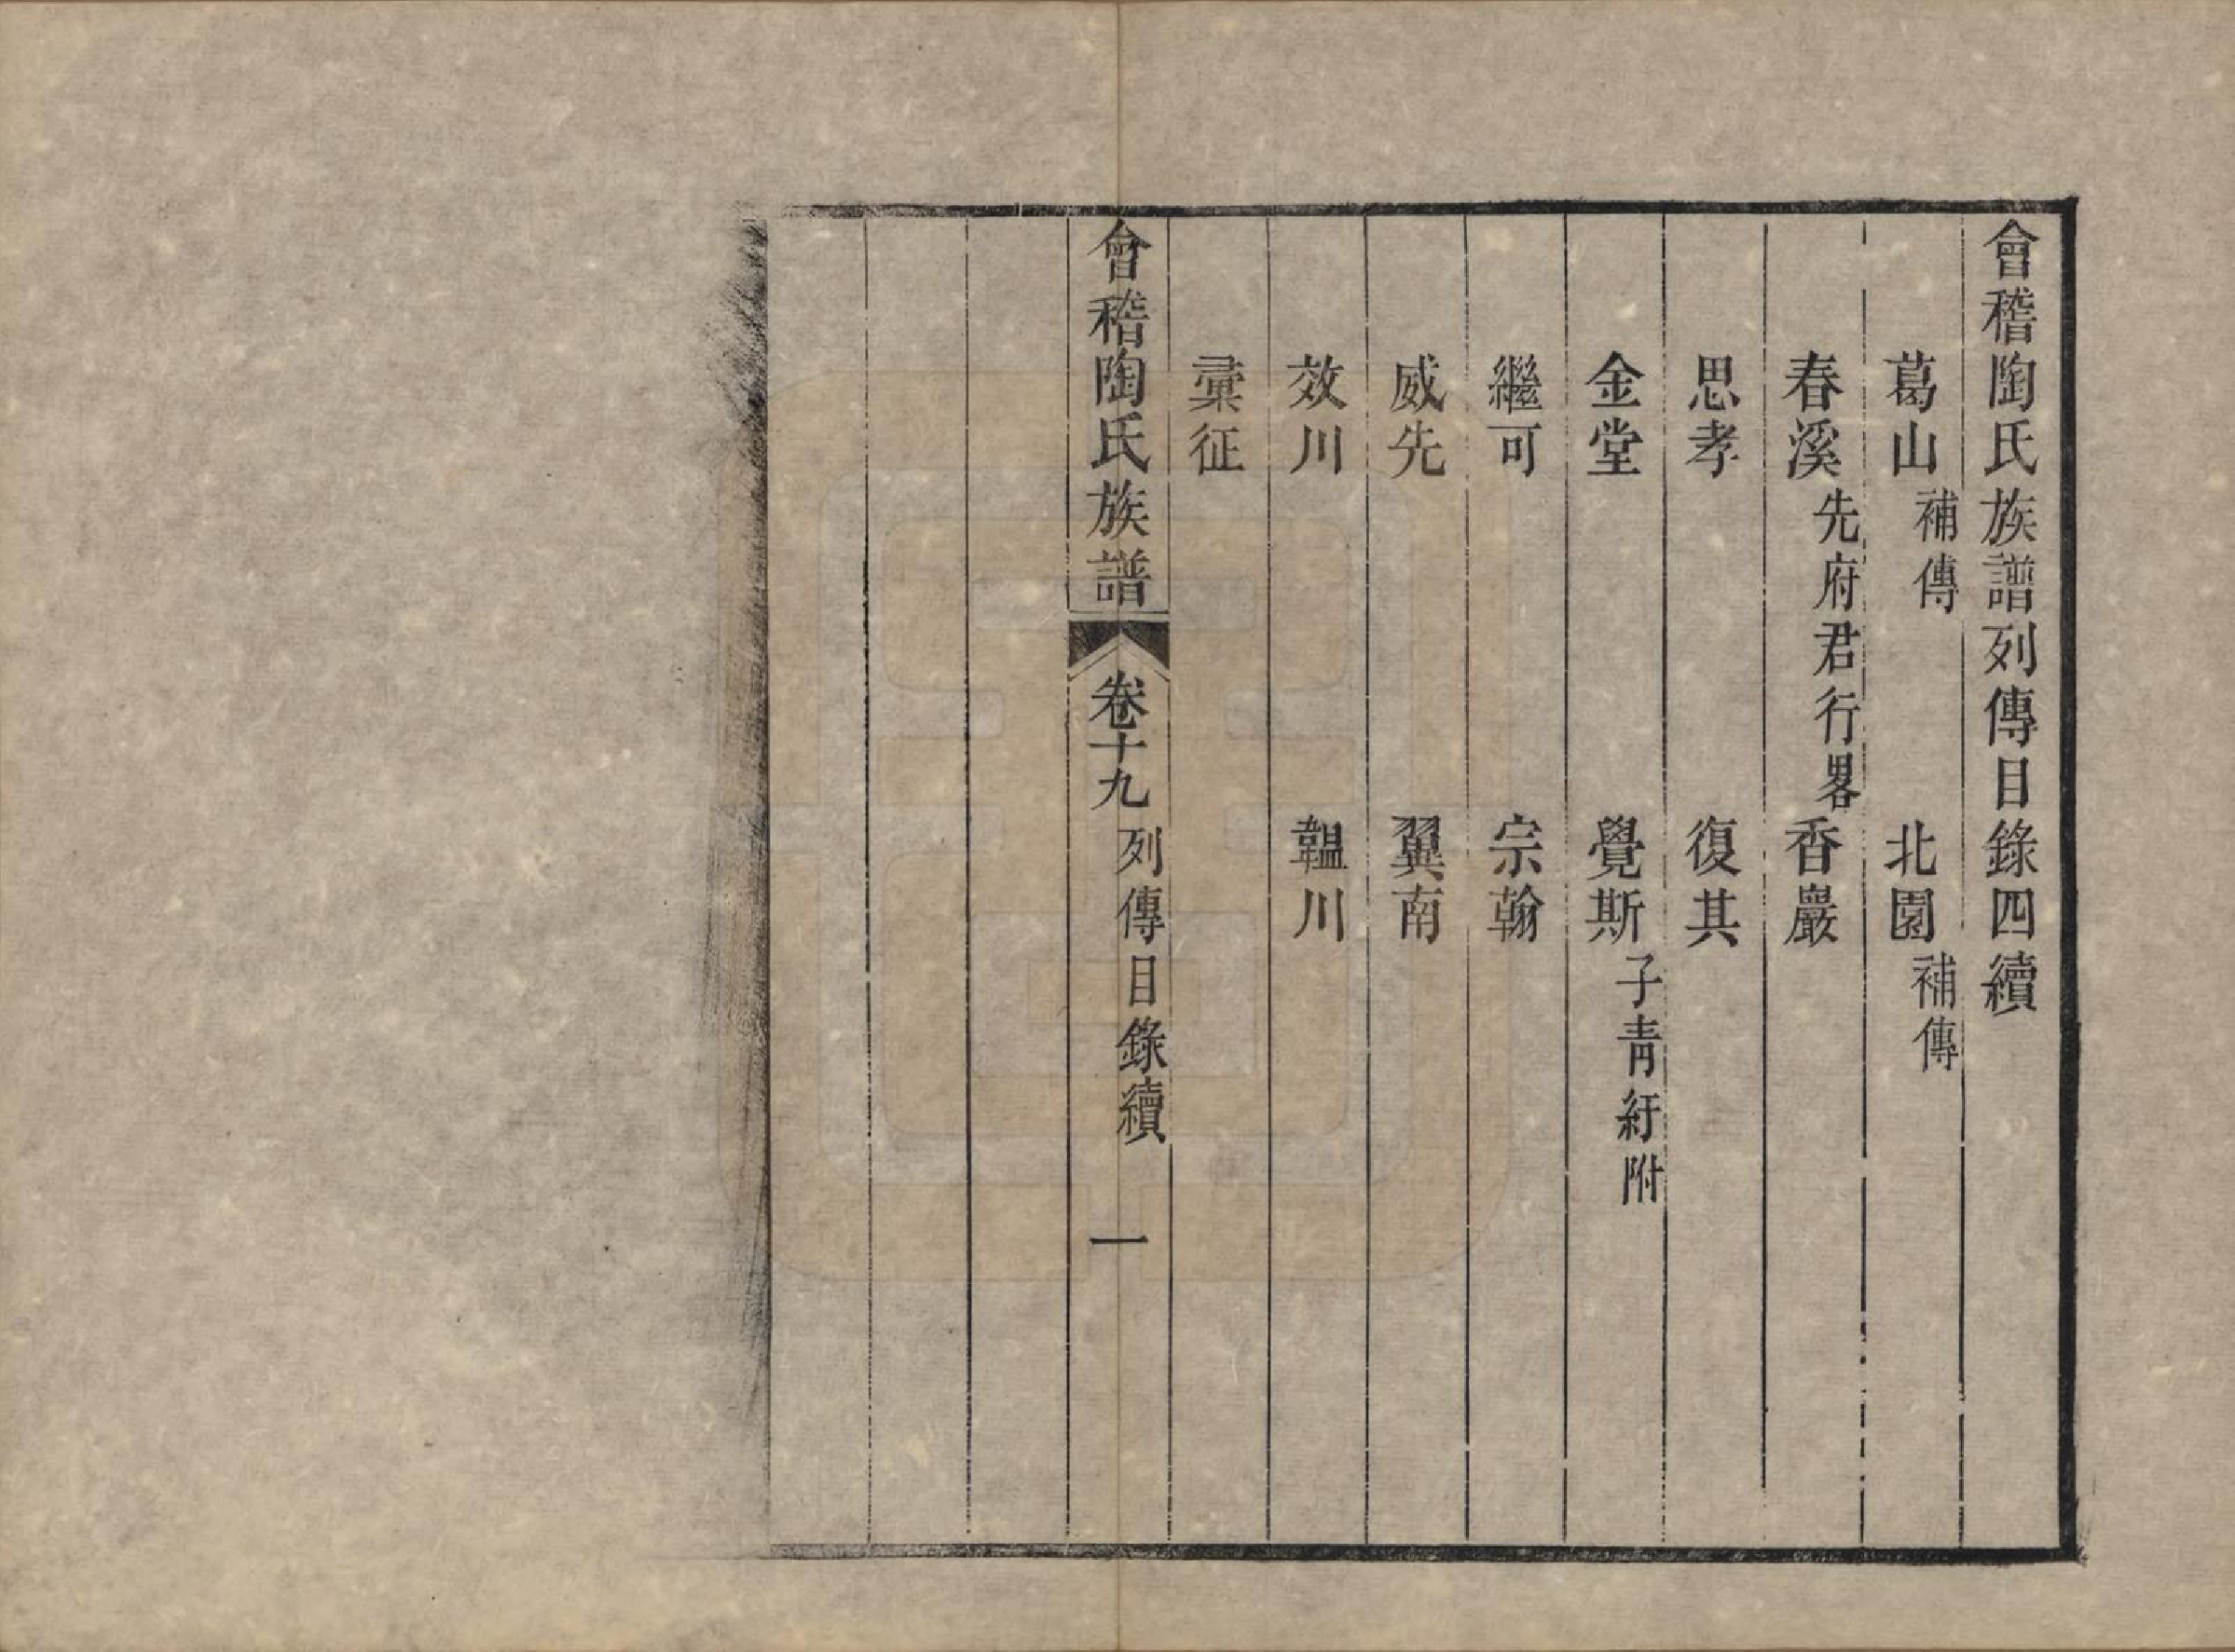 會稽陶氏族譜列傳目錄四續
葛山補傳　北園補傳
春溪先府君行畧　香巖
思孝　復其
金堂　覺斯子靑紆附
繼可　宗翰
威先　翼南
效川　韞川
彙征
會稽陶氏族譜　卷十九　列傳目錄續　一